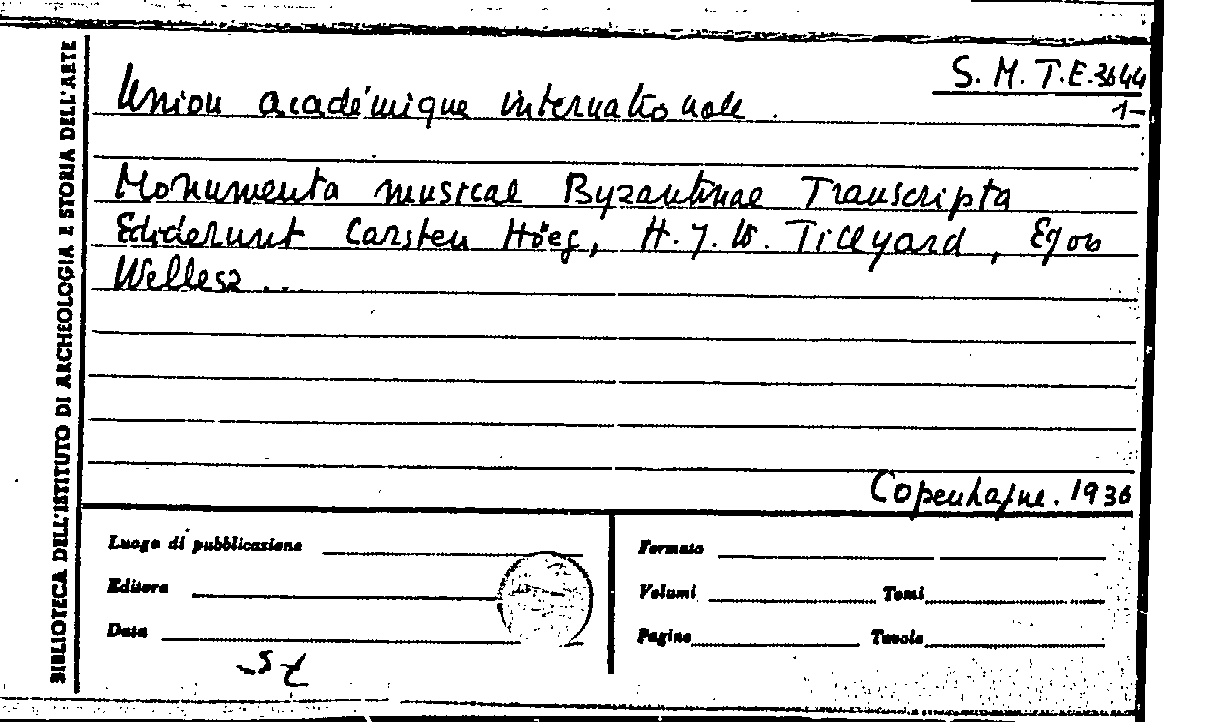 BIBLIOTECA DELL'ISTITUTO DI ARCHEOLOGIA E STORIA DELL'ARTE
S. M. T. E. 3644
1-
Union académique internationale.
Monumenta musicae Byzantinae Transcripta
Ediderunt Carsten Höeg, H. J. W. Tillyard, Egon
Wellesz...
Copenhague. 1936
Luogo di pubblicazione
Editore
Data
Formato
Volumi Tomi
Pagine Tavole